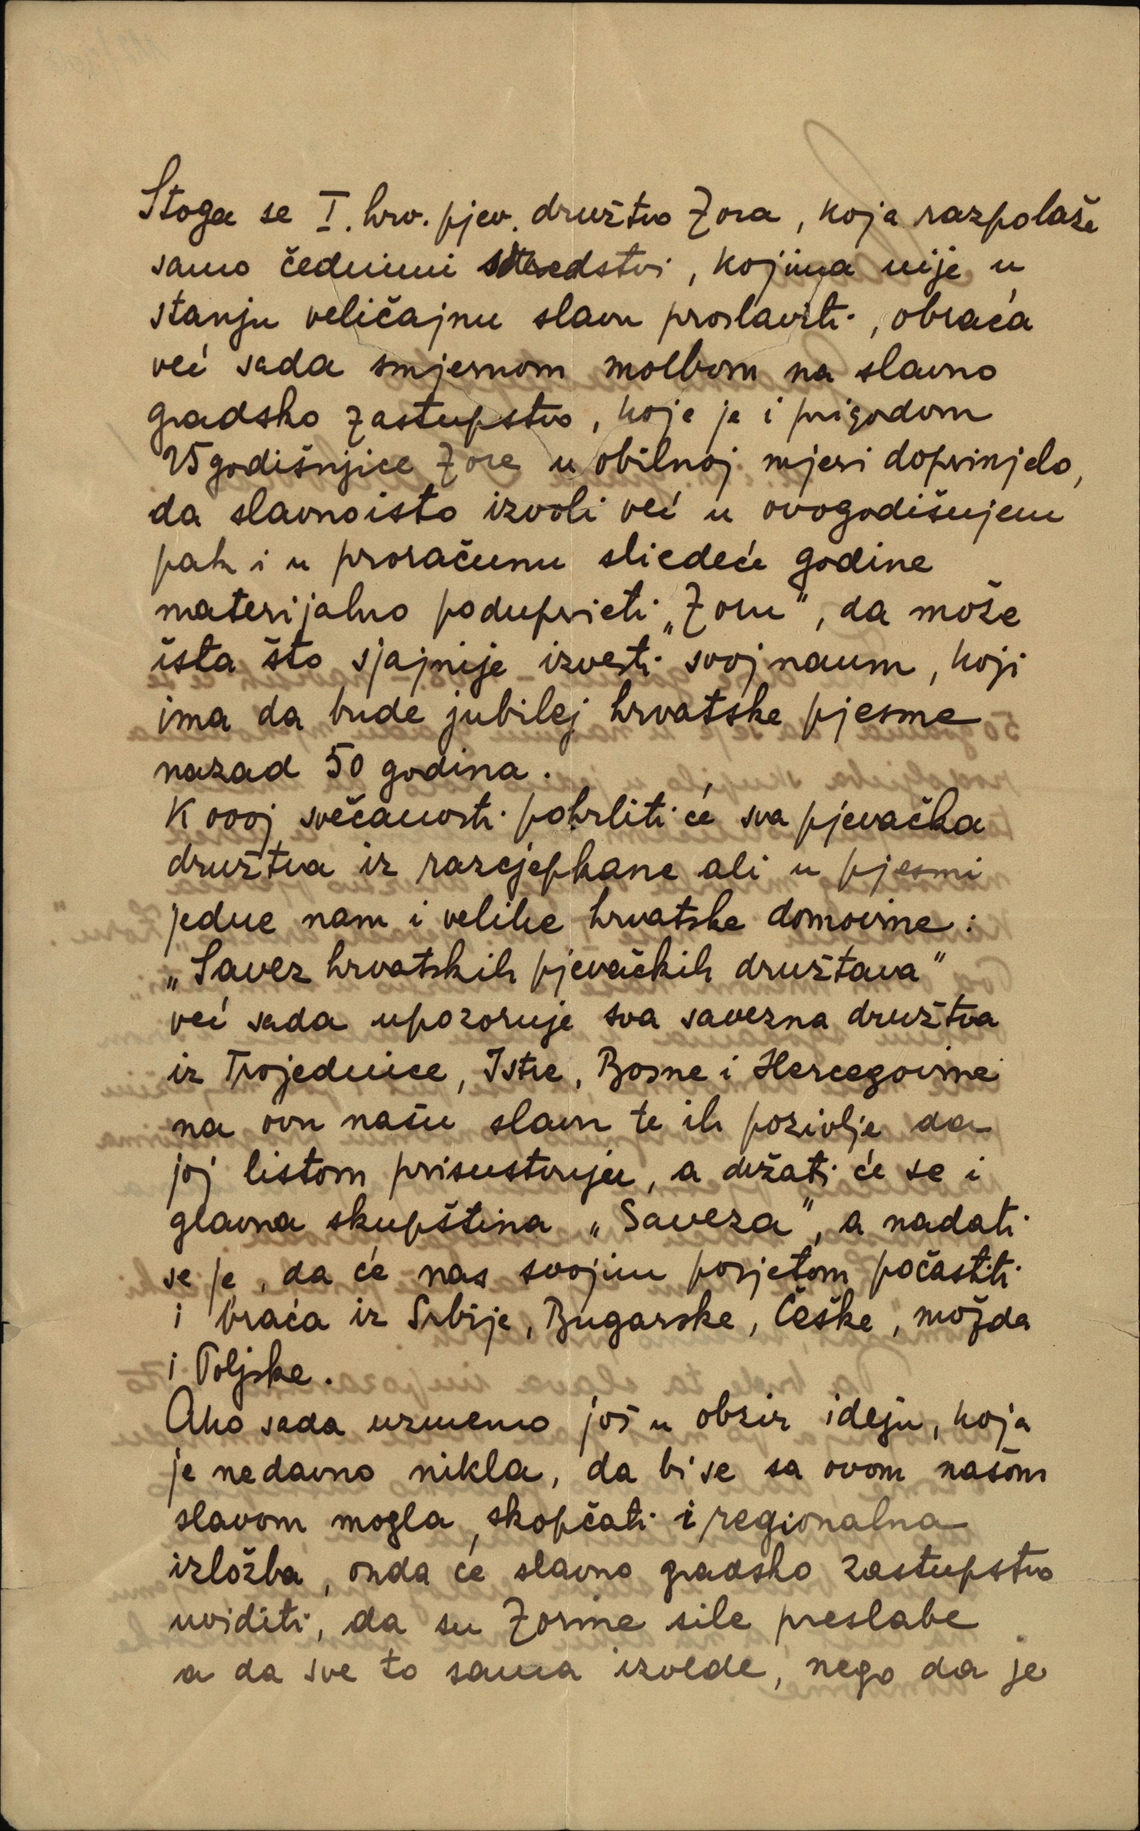 Stoga se I. hrv. pjev. družtvo Zora, koja razpolaže
samo čednimi sredstvi, kojima nije u
stanju veličajnu slavu proslaviti, obraća
već sada smjernom molbom na slavno
gradsko zastupstvo, koje je i prigodom
25godišnjice Zore u obilnoj mjeri doprinjelo,
da slavnoisto izvoli već u ovogodišnjem
pak i u proračunu sliedeće godine
materijalno poduprieti „Zoru”, da može
ista što sjajnije izvesti svoj naum, koji
ima da bude jubilej hrvatske pjesme
nazad 50 godina.
K ovoj svečanosti pohrliti će sva pjevačka
družtva iz razcjepkane ali u pjesmi
jedne nam i velike hrvatske domovine:
„Savez hrvatskih pjevačkih družtava”
već sada upozoruje sva savezna družtva
iz Trojednice, Istre, Bosne i Hercegovine
na ovu našu slavu te ih pozivlje da
joj listom prisustvuju, a držati će se i
glavna skupština „Saveza”, a nadati
se je, da će nas svojim posjetom počastiti
i braća iz Srbije, Bugarske, Češke, možda
i Poljske.
Ako sada uzmemo još u obzir ideju, koja
je nedavno nikla, da bi se sa ovom našom
slavom mogla skopčati i regionalna
izložba, onda će slavno gradsko zastupstvo
uviditi, da su Zorine sile preslabe
a da sve to sama izvede, nego da je